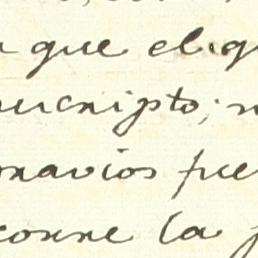 que el q
nuscripto; n
navios fue
corre la